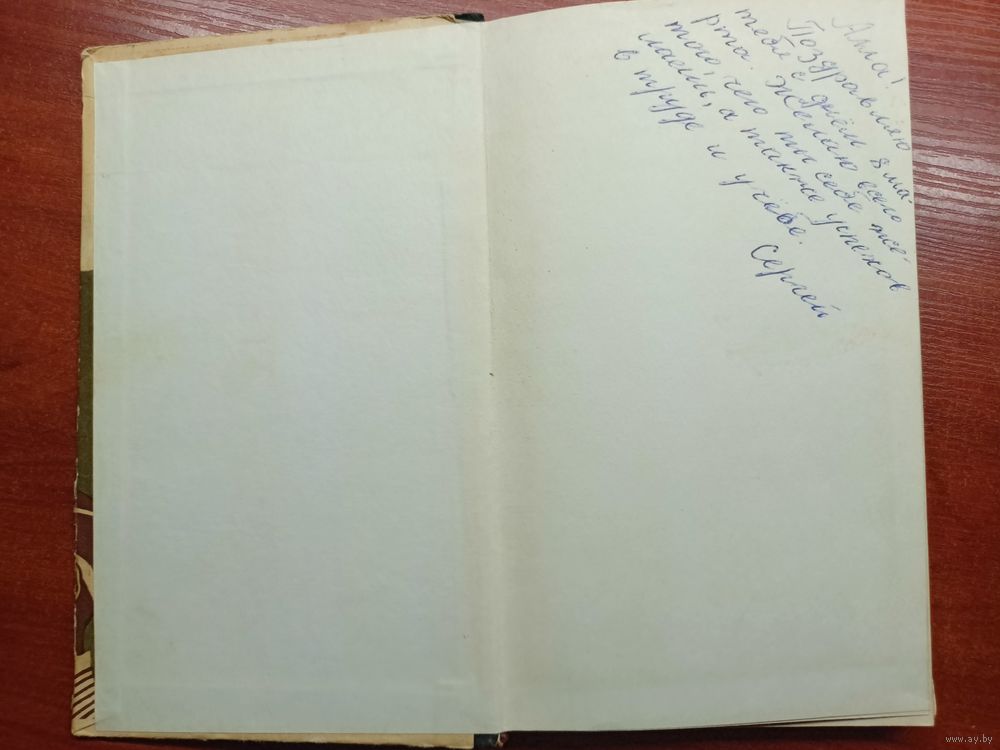 Алла!
Поздравляю
тебя с днём 8 ма-
рта. Желаю всего
того, чего ты себе же-
лаешь, а также успехов
в труде и учёбе.
Сергей
www.ay.by